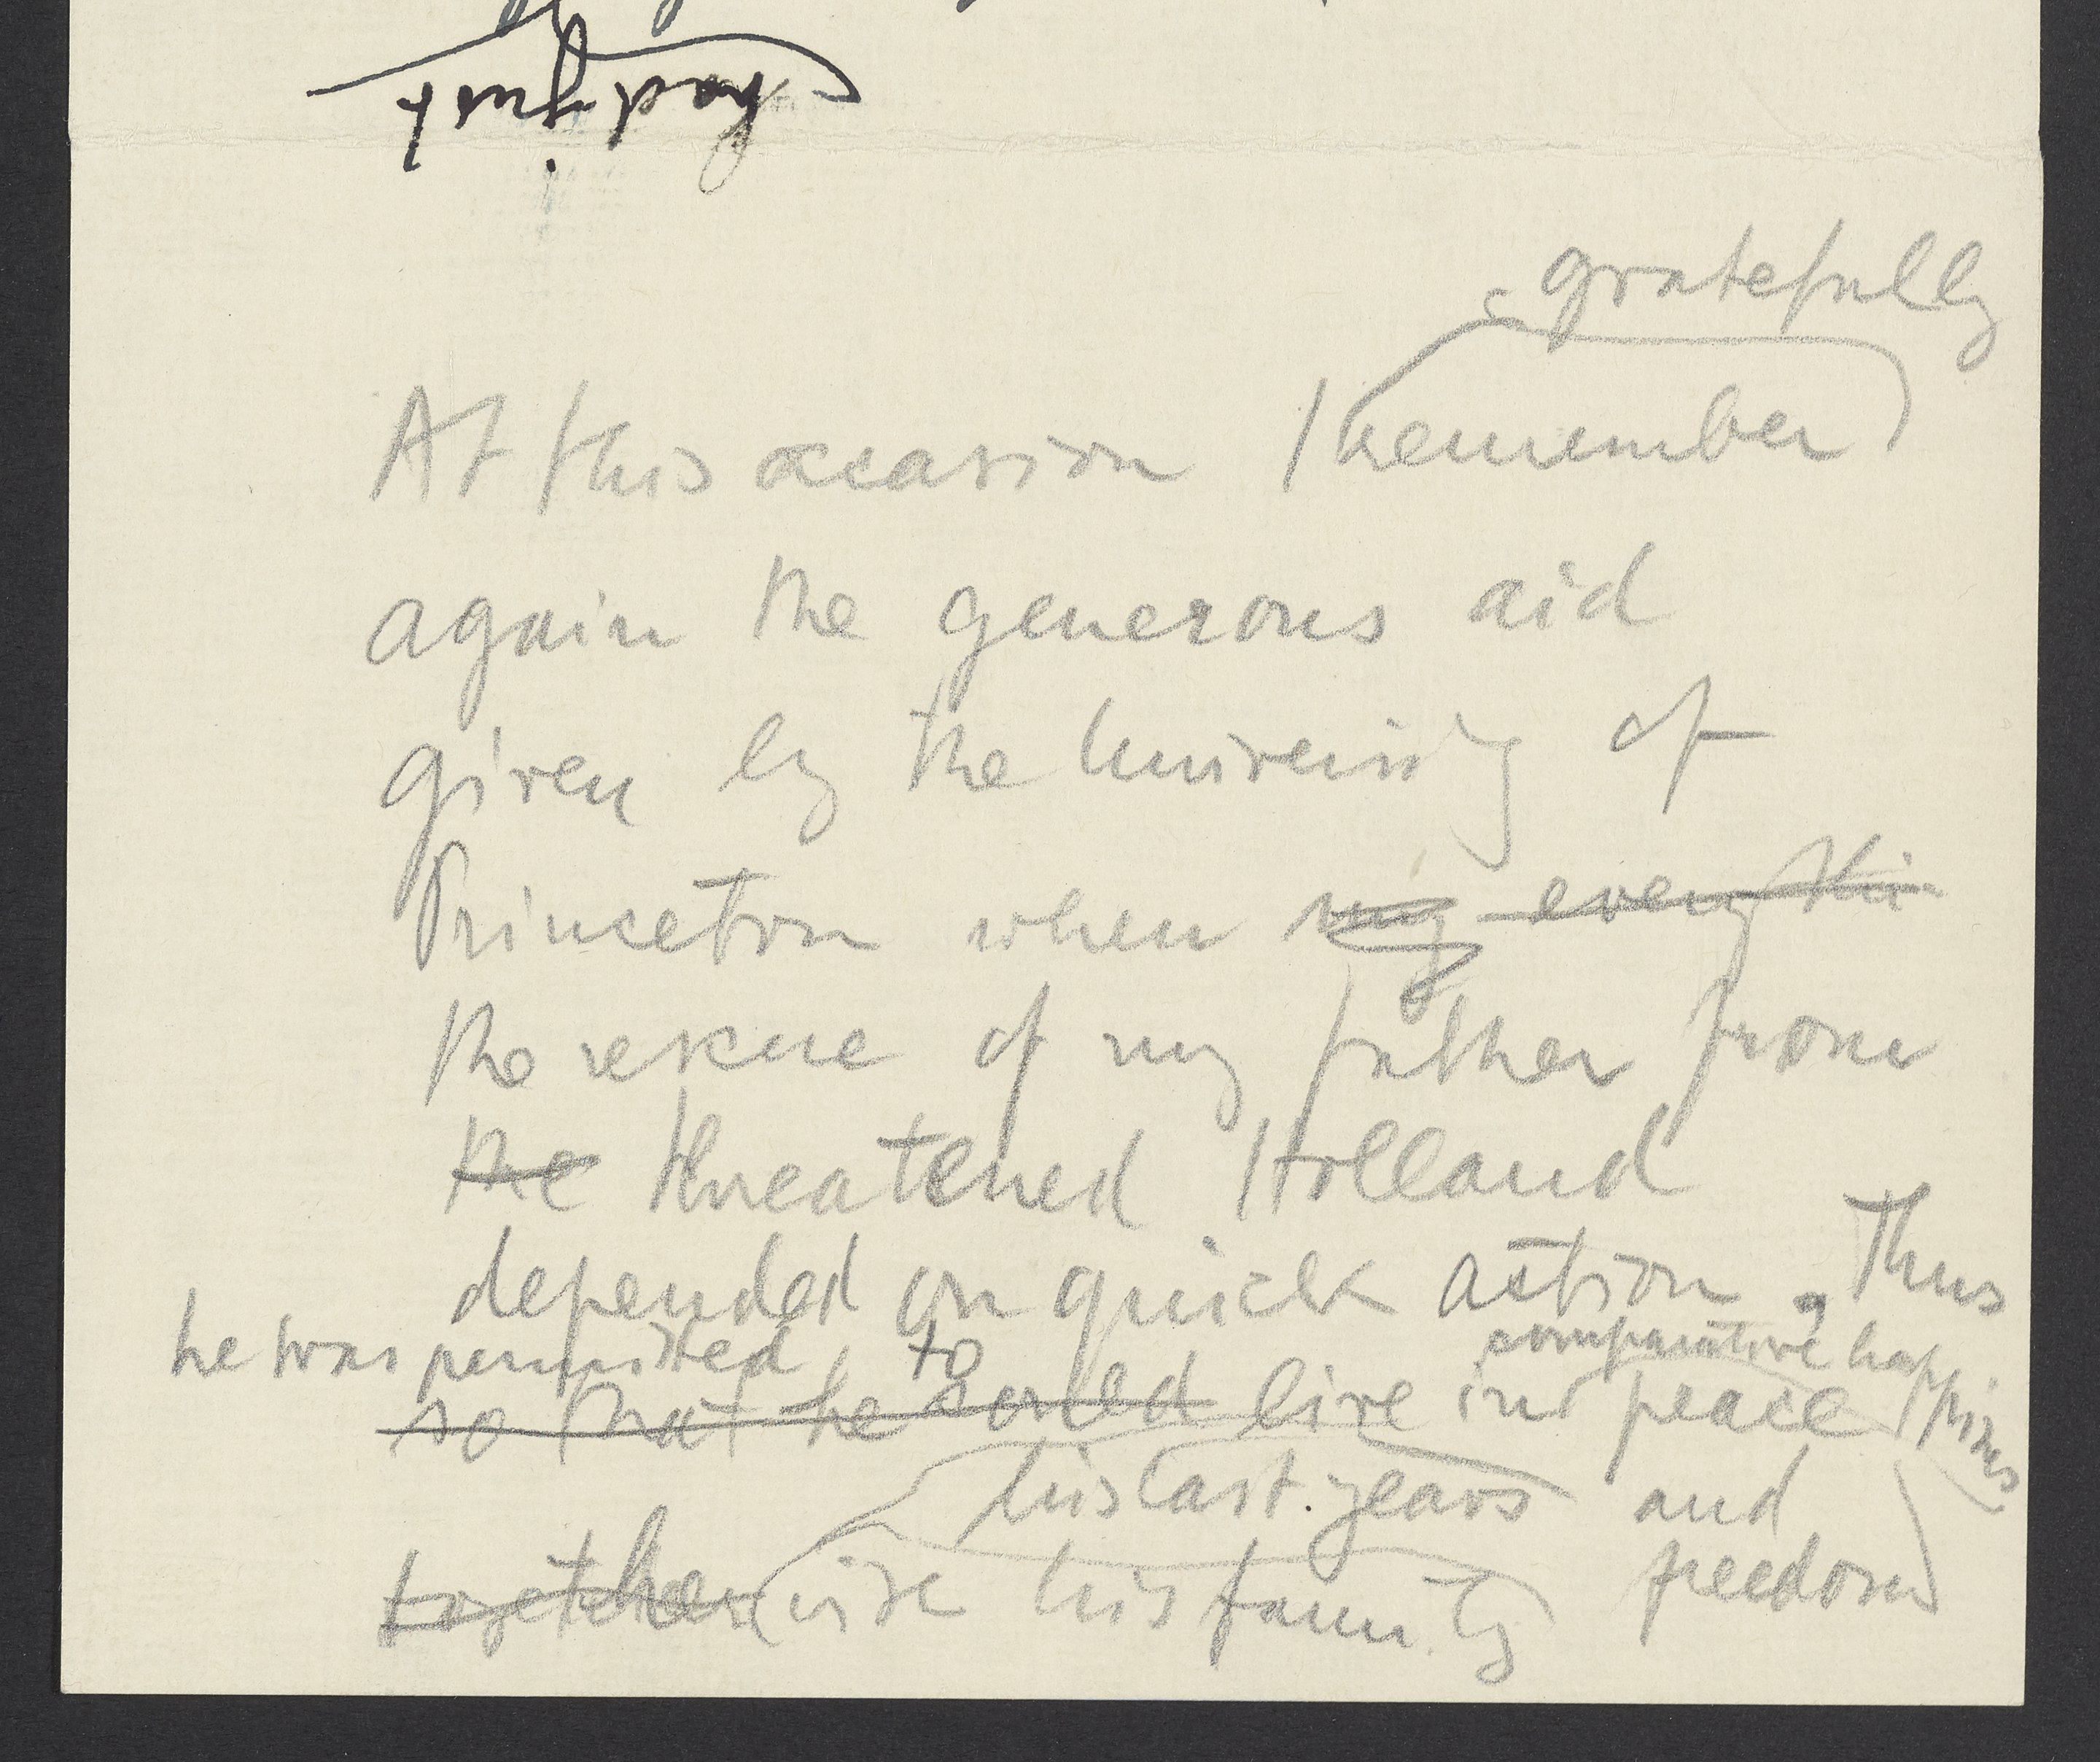 had just
gratefully
At this occasion I remember
again the generous aid
given by the University of
Princeton when my every thi
the rescue of my father from
the threatened Holland
depended on quick action. Thus
he was permitted, to comparative happiness
so that he could live in peace
his last years and
together with his family freedom